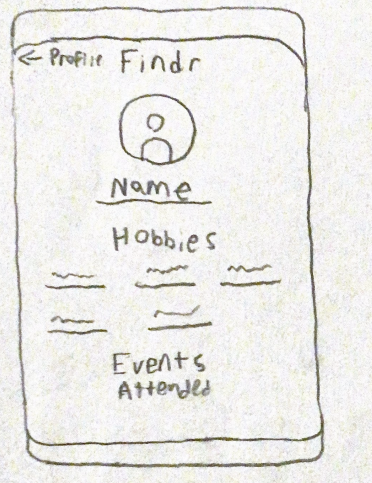 ← Profile Findr
Name
Hobbies
Events
Attended